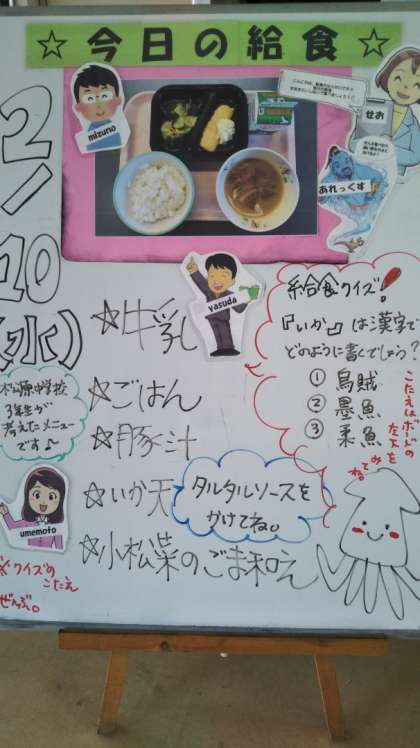 ☆今日の給食☆
mizuno
せお
あれっくす
2/10(水)
yasuda
☆牛乳
☆ごはん
☆豚汁
☆いか天
タルタルソースを
かけてね。
☆小松菜のごま和え
給食クイズ!
『いか』は漢字で
どのように書くでしょう?
① 烏賊
② 墨魚
③ 柔魚
こたえはボードの
左下を
みてね
松原中学校
3年生が
考えたメニュー
です♪
umemoto
※クイズの
こたえ
ぜんぶ。